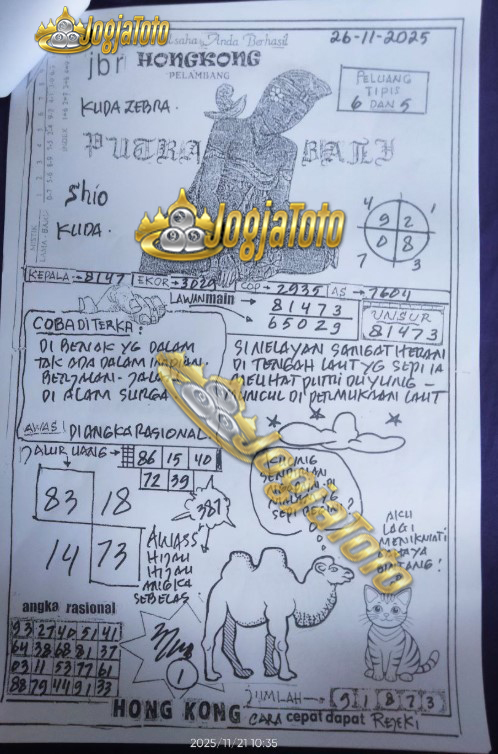 JogjaToto
Usaha Anda Berhasil
26-11-2025
jbr HONGKONG
PELAMBANG
PELUANG
TIPIS
6 DAN 5
KUDA ZEBRA.
PUTRA BALI
Shio
KUDA.
4 1
9 2
0 8
7 3
JogjaToto
KEPALA → 8147 EKOR → 3029 COP → 2935 AS → 7604
LAWANmain → 81473
65029
UNSUR
81473
COBA DITERKA:
DI BENAK YG DALAM
TAK ADA DALAM IMPIAN.
BERJALAN - JALAN
DI ALAM SURGA
SI NELAYAN SANGAT HERAN
DI TENGAH LAUT YG SEPI IA
MELIHAT PUTRI DUYUNG -
MUNCUL DI PERMUKAAN LAUT
AWAS! DI ANGKA RASIONAL
JALUR UANG → 86 15 40
72 39
83 18
14 73
387
JogjaToto
AWASS
HIJAU
HIJAU
ANGKA
SEBELAS
AKU
LAGI
MENIKMATI
CAHAYA
BINTANG!
angka rasional
23 27 40 51 41
64 38 68 81 37
03 11 53 77 61
88 79 44 91 33
1
JUMLAH → 9 1 8 7 3
HONG KONG CARA cepat dapat REJEKI
2025/11/21 10:35